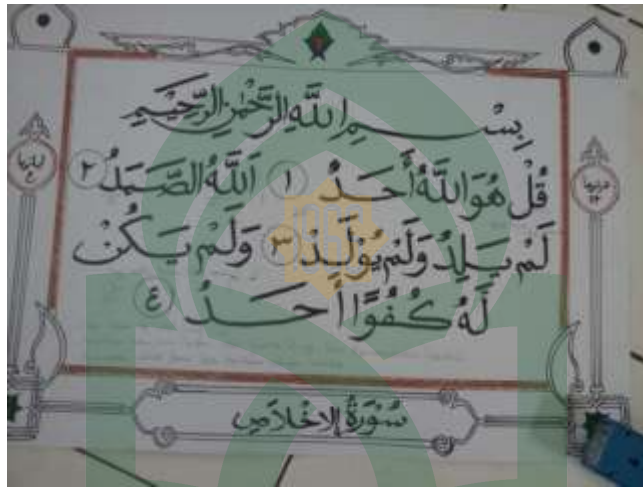 بِسْمِ اللَّهِ الرَّحْمٰنِ الرَّحِيْمِ
قُلْ هُوَ اللَّهُ أَحَدٌ ١ اَللَّهُ الصَّمَدُ ٢
لَمْ يَلِدْ وَلَمْ يُوْلَدْ ٣ وَلَمْ يَكُنْ
لَهُ كُفُوًا أَحَدٌ ٤
سُوْرَةُ الإِخْلَاصِ